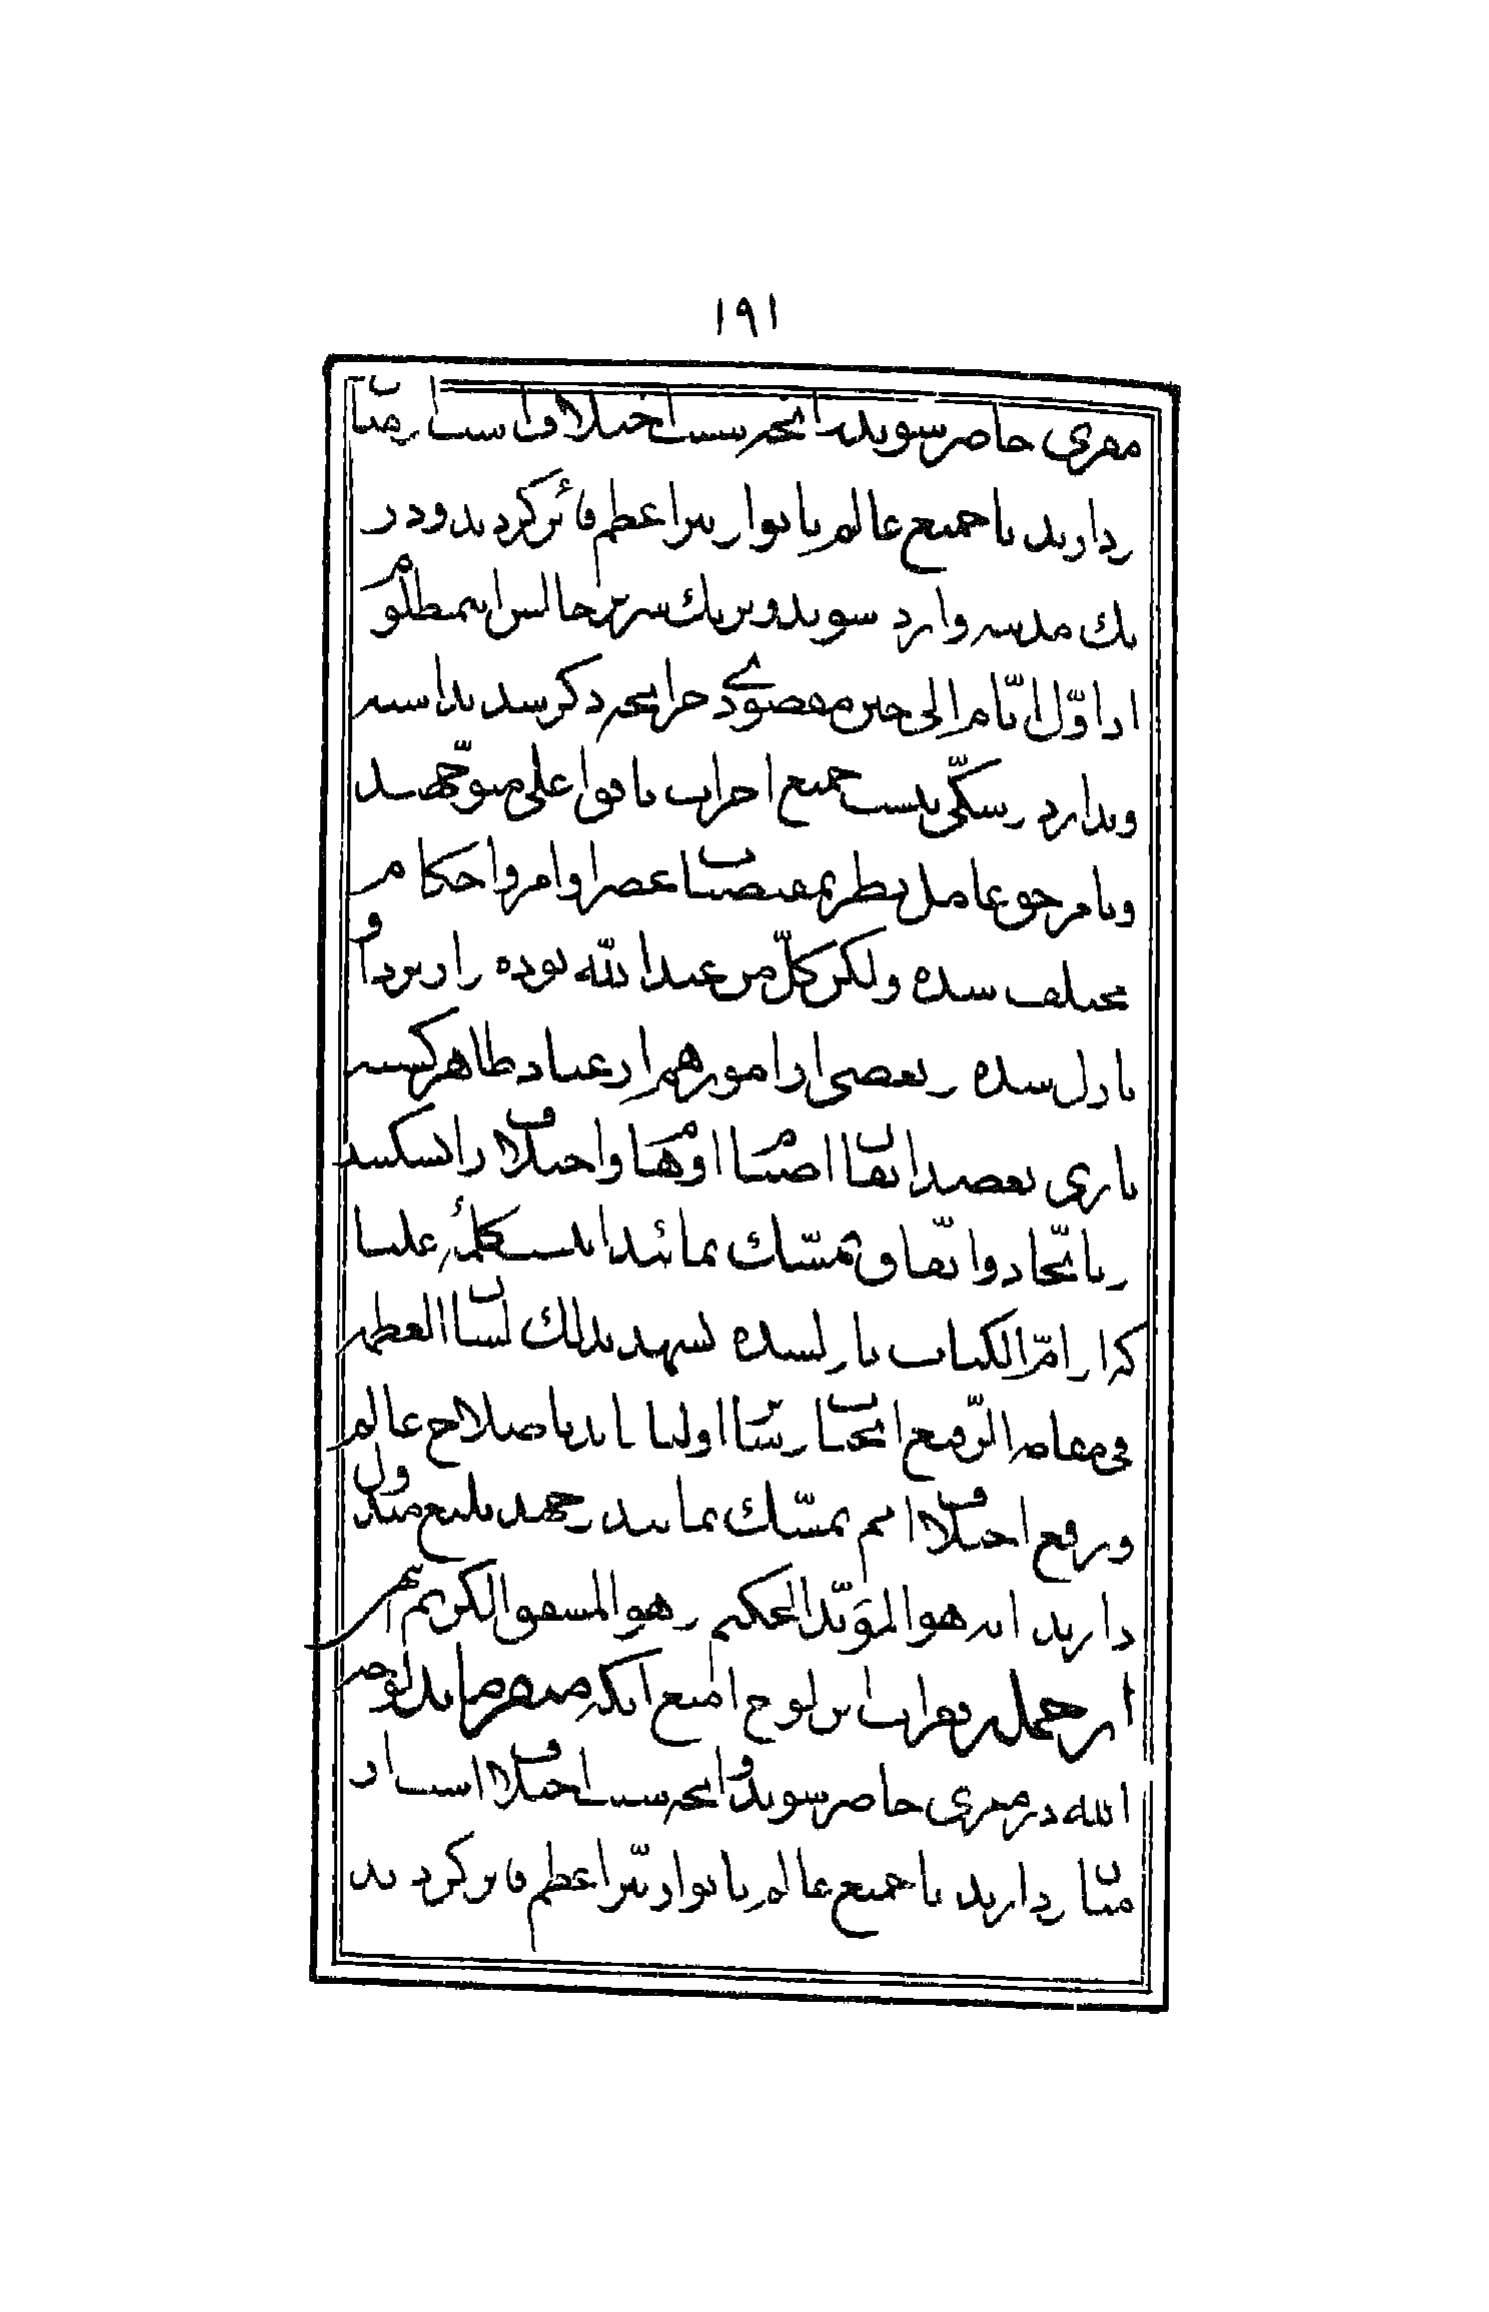 ۱۹۱
مقرّی حاضر شوید و آنچه سبب اختلافست از میان
بردارید تا جمیع عالم بانوار نیّر اعظم فائز گردند و در
یک مدینه وارد شوند و بر یک سریر جالس این مظلوم
از اوّل ایّام الی حین مقصودی جز آنچه ذکر شد نداشته
و ندارد شکّی نیست جمیع احزاب بافق اعلی متوجّهند
و بامر حقّ عامل نظر بمقتضیات عصر اوامر و احکام
مختلف شده ولکن کلّ من عند اللّه بوده و از نزد او
نازل شده و بعضی از امور هم از عناد ظاهر گشته
باری بعضد ایقان اصنام اوهام و اختلاف را بشکنید
و باتّحاد و اتّفاق تمسّک نمائید اینست کلمهٔ علیا
که از امّ الکتاب نازل شده یشهد بذلک لسان العظمة
فی مقامه الرّفیع آنجناب و سایر اولیا باید باصلاح عالم
و رفع اختلاف امم تمسّک نمایند و جهد بلیغ مبذول
دارید انّه هو المؤیّد الحکیم و هو المشفق الکریم انتهی
از جمله فقرات این لوح امنع آنکه میفرماید لوجه
اللّه در مقرّی حاضر شوید و آنچه سبب اختلاف است از
میان بردارید تا جمیع عالم بانوار نیّر اعظم فائز گردند